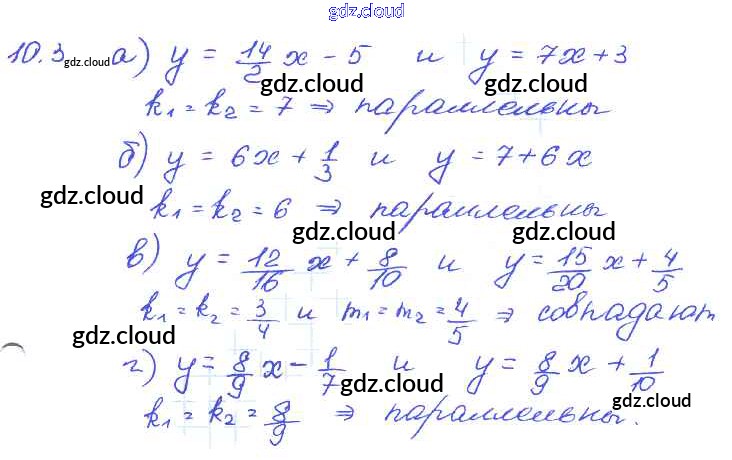 gdz.cloud
10.3 а) y = 14/2 x - 5 и y = 7x + 3
gdz.cloud
gdz.cloud gdz.cloud
k₁ = k₂ = 7 ⇒ параллельны
б) y = 6x + 1/3 и y = 7 + 6x
gdz.cloud
k₁ = k₂ = 6 ⇒ параллельны
gdz.cloud gdz.cloud
в) y = 12/16 x + 8/10 и y = 15/20 x + 4/5
k₁ = k₂ = 3/4 и m₁ = m₂ = 4/5 ⇒ совпадают
gdz.cloud
г) y = 8/9 x - 1/7 и y = 8/9 x + 1/10
gdz.cloud gdz.cloud
k₁ = k₂ = 8/9 ⇒ параллельны.